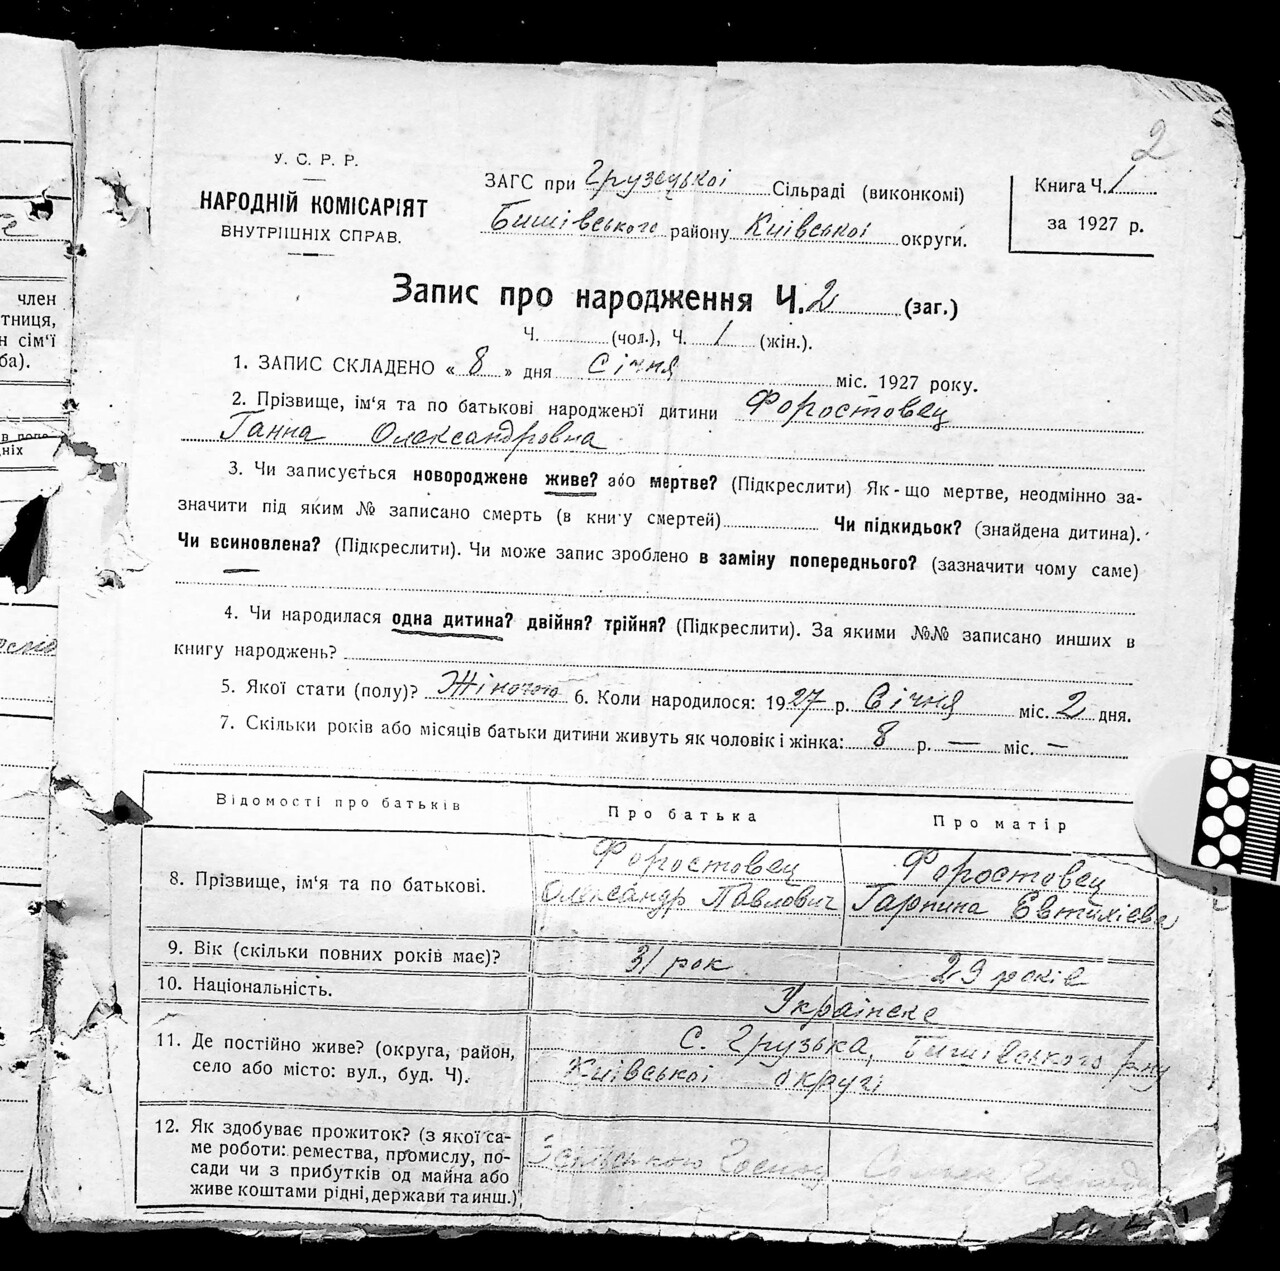 2
У. С. Р. Р.
НАРОДНІЙ КОМІСАРІЯТ
ВНУТРІШНІХ СПРАВ.
ЗАГС при Грузецької Сільраді (виконкомі)
Бишівського району Київської округи.
Книга Ч. 1
за 1927 р.
Запис про народження Ч. 2 (заг.)
Ч. (чол.), Ч. 1 (жін.).
1. ЗАПИС СКЛАДЕНО « 8 » дня Січня міс. 1927 року.
2. Прізвище, ім'я та по батькові народженої дитини Форостовец
Ганна Олександровна
3. Чи записується новороджене живе? або мертве? (Підкреслити) Як-що мертве, неодмінно за-
значити під яким № записано смерть (в книгу смертей) Чи підкидьок? (знайдена дитина).
Чи всиновлена? (Підкреслити). Чи може запис зроблено в заміну попереднього? (зазначити чому саме)
4. Чи народилася одна дитина? двійня? трійня? (Підкреслити). За якими №№ записано инших в
книгу народжень?
5. Якої стати (полу)? Жіночою 6. Коли народилось: 1927 р. Січня міс. 2 дня.
7. Скільки років або місяців батьки дитини живуть як чоловік і жінка: 8 р. — міс. —
Відомості про батьків Про батька Про матір
8. Прізвище, ім'я та по батькові.
Форостовец
Олександр Павлович
Форостовец
Гарпина Евтихієва
9. Вік (скільки повних років має)? 31 рок 29 років
10. Національність. Українске
11. Де постійно живе? (округа, район,
село або місто: вул., буд. Ч).
с. Грузька, Бишівського р-ну
Київської округі
12. Як здобуває прожиток? (з якої са-
ме роботи: ремества, промислу, по-
сади чи з прибутків од майна або
живе коштами рідні, держави та инш.)
член
тниця,
н сім'ї
ба).